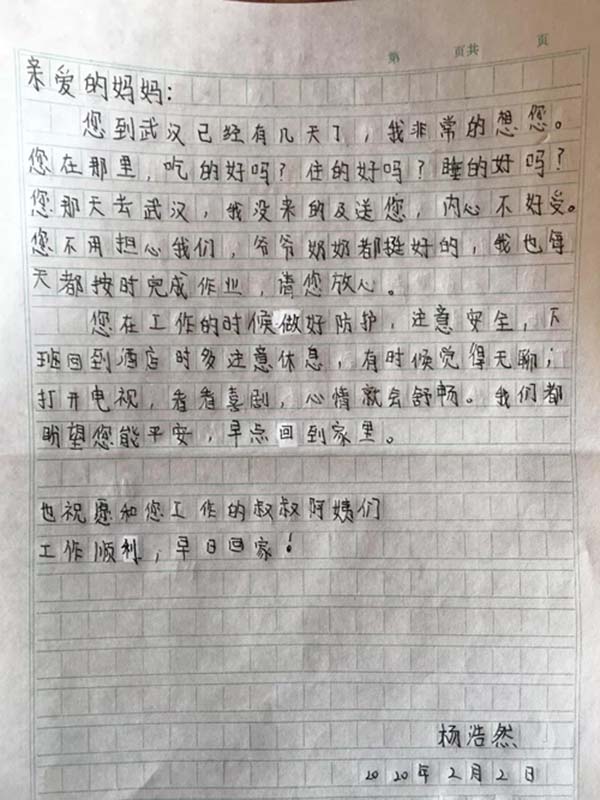 第 页共 页
亲爱的妈妈：
您到武汉已经有几天了，我非常的想您。
您在那里，吃的好吗？住的好吗？睡的好吗？
您那天去武汉，我没来的及送您，内心不好受。
您不用担心我们，爷爷奶奶都挺好的，我也每
天都按时完成作业，请您放心。
您在工作的时候做好防护，注意安全，下
班回到酒店时多注意休息，有时候觉得无聊；
打开电视，看看喜剧，心情就会舒畅。我们都
盼望您能平安，早点回到家里。
也祝愿和您工作的叔叔阿姨们
工作顺利，早日回家！
杨浩然
2020年2月2日